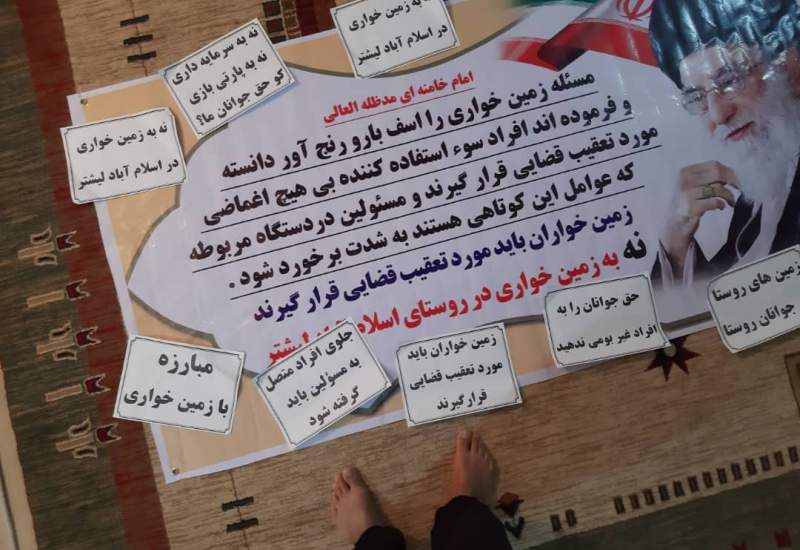 نه به زمین خواری
در اسلام آباد لیشتر
نه به سرمایه داری
نه به پارتی بازی
کو حق جوانان ما؟
نه به زمین خواری
در اسلام آباد لیشتر
امام خامنه ای مدظله العالی
مسئله زمین خواری را اسف بارو رنج آور دانسته
و فرموده اند افراد سوء استفاده کننده بی هیچ اغماضی
مورد تعقیب قضایی قرار گیرند و مسئولین دردستگاه مربوطه
که عوامل این کوتاهی هستند به شدت برخورد شود .
زمین خواران باید مورد تعقیب قضایی قرار گیرند
نه به زمین خواری در روستای اسلام لیشتر
زمین های روستا
جوانان روستا
حق جوانان را به
افراد غیر بومی ندهید
زمین خواران باید
مورد تعقیب قضایی
قرارگیرند
جلوی افراد متصل
به مسئولین باید
گرفته شود
مبارزه
با زمین خواری